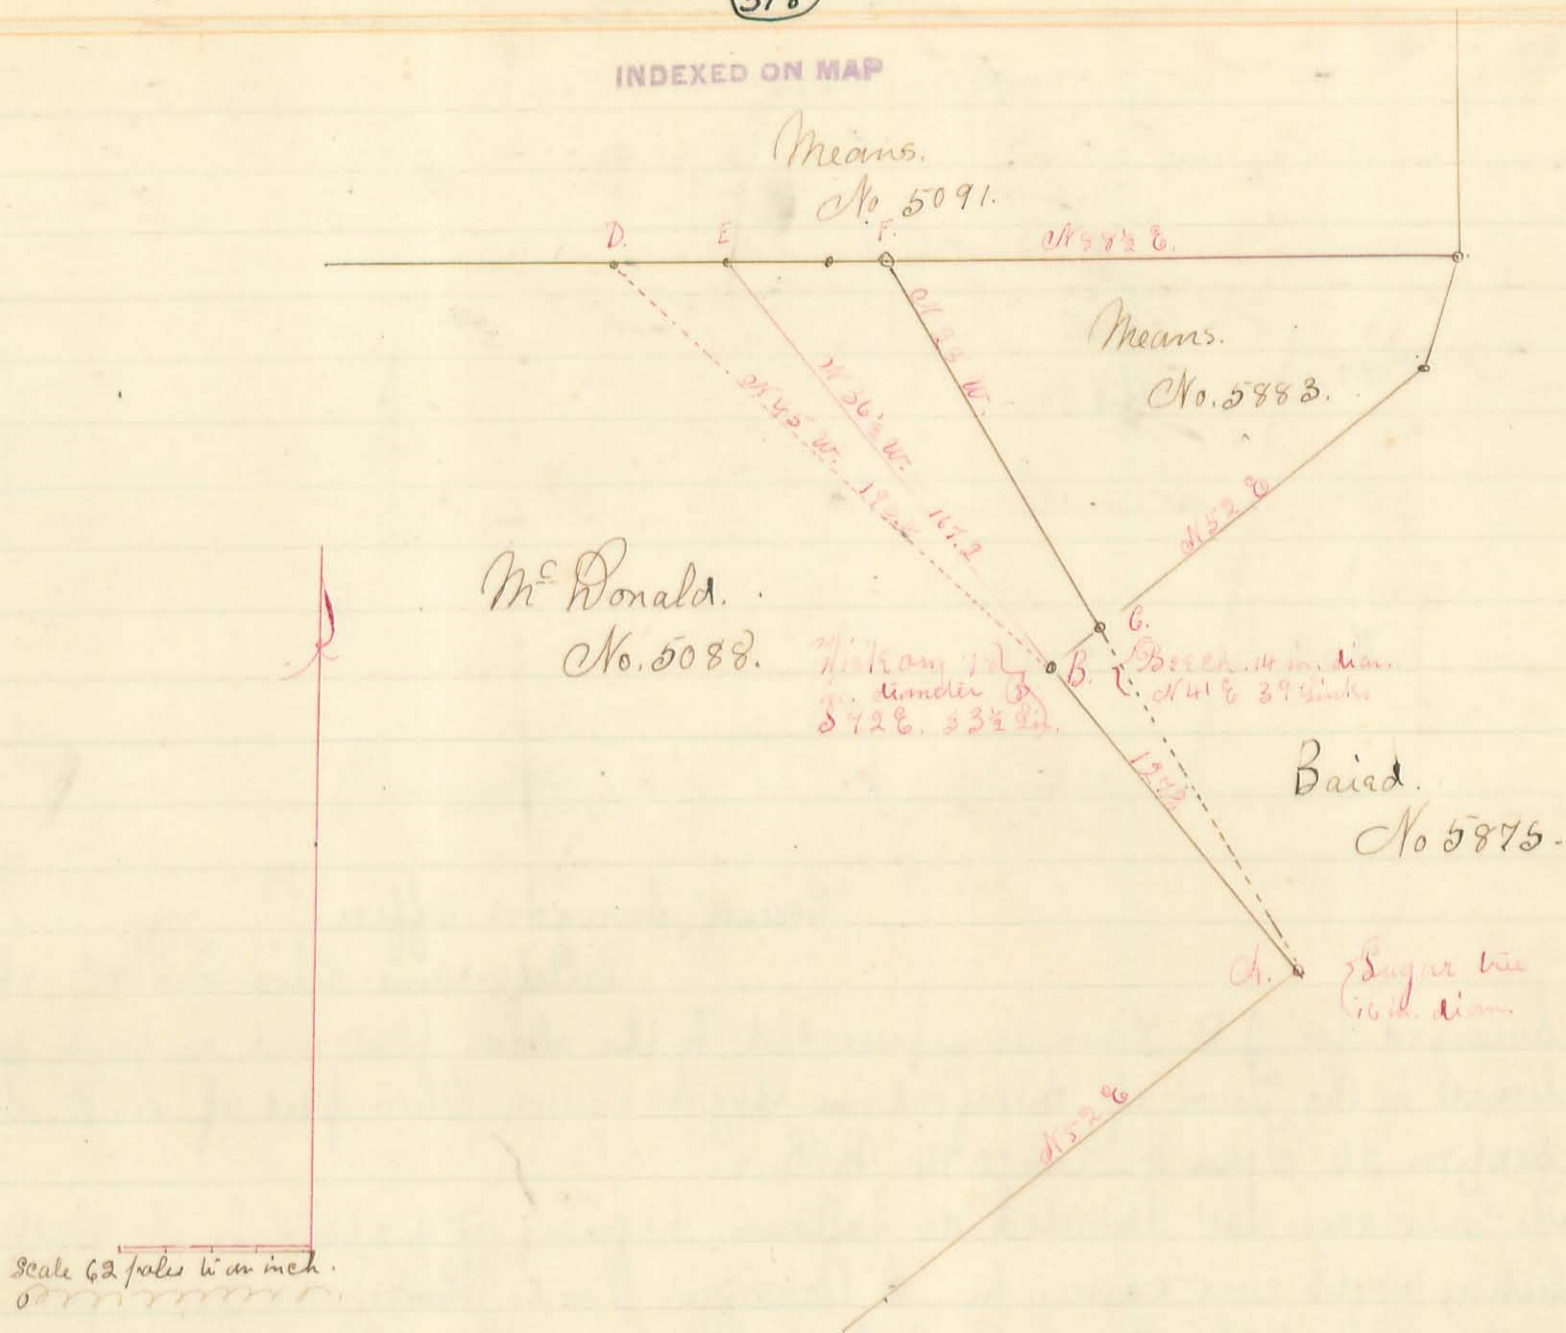 INDEXED ON MAP
Means.
No 5091.
D.
E
F.
N 88½ E.
N 23 W.
Means.
No. 5883.
N 36½ W. 167.2
N 45 W.
N 52 E
Mc Donald.
No. 5088.
C.
B.
diameter
S 72 E. 33½
Beech 14 in. diam.
N 41 E 39 Links
Baird.
No 5875.
A.
Sugar tree
16 in. diam.
N 52 E
Scale 62 poles to an inch.